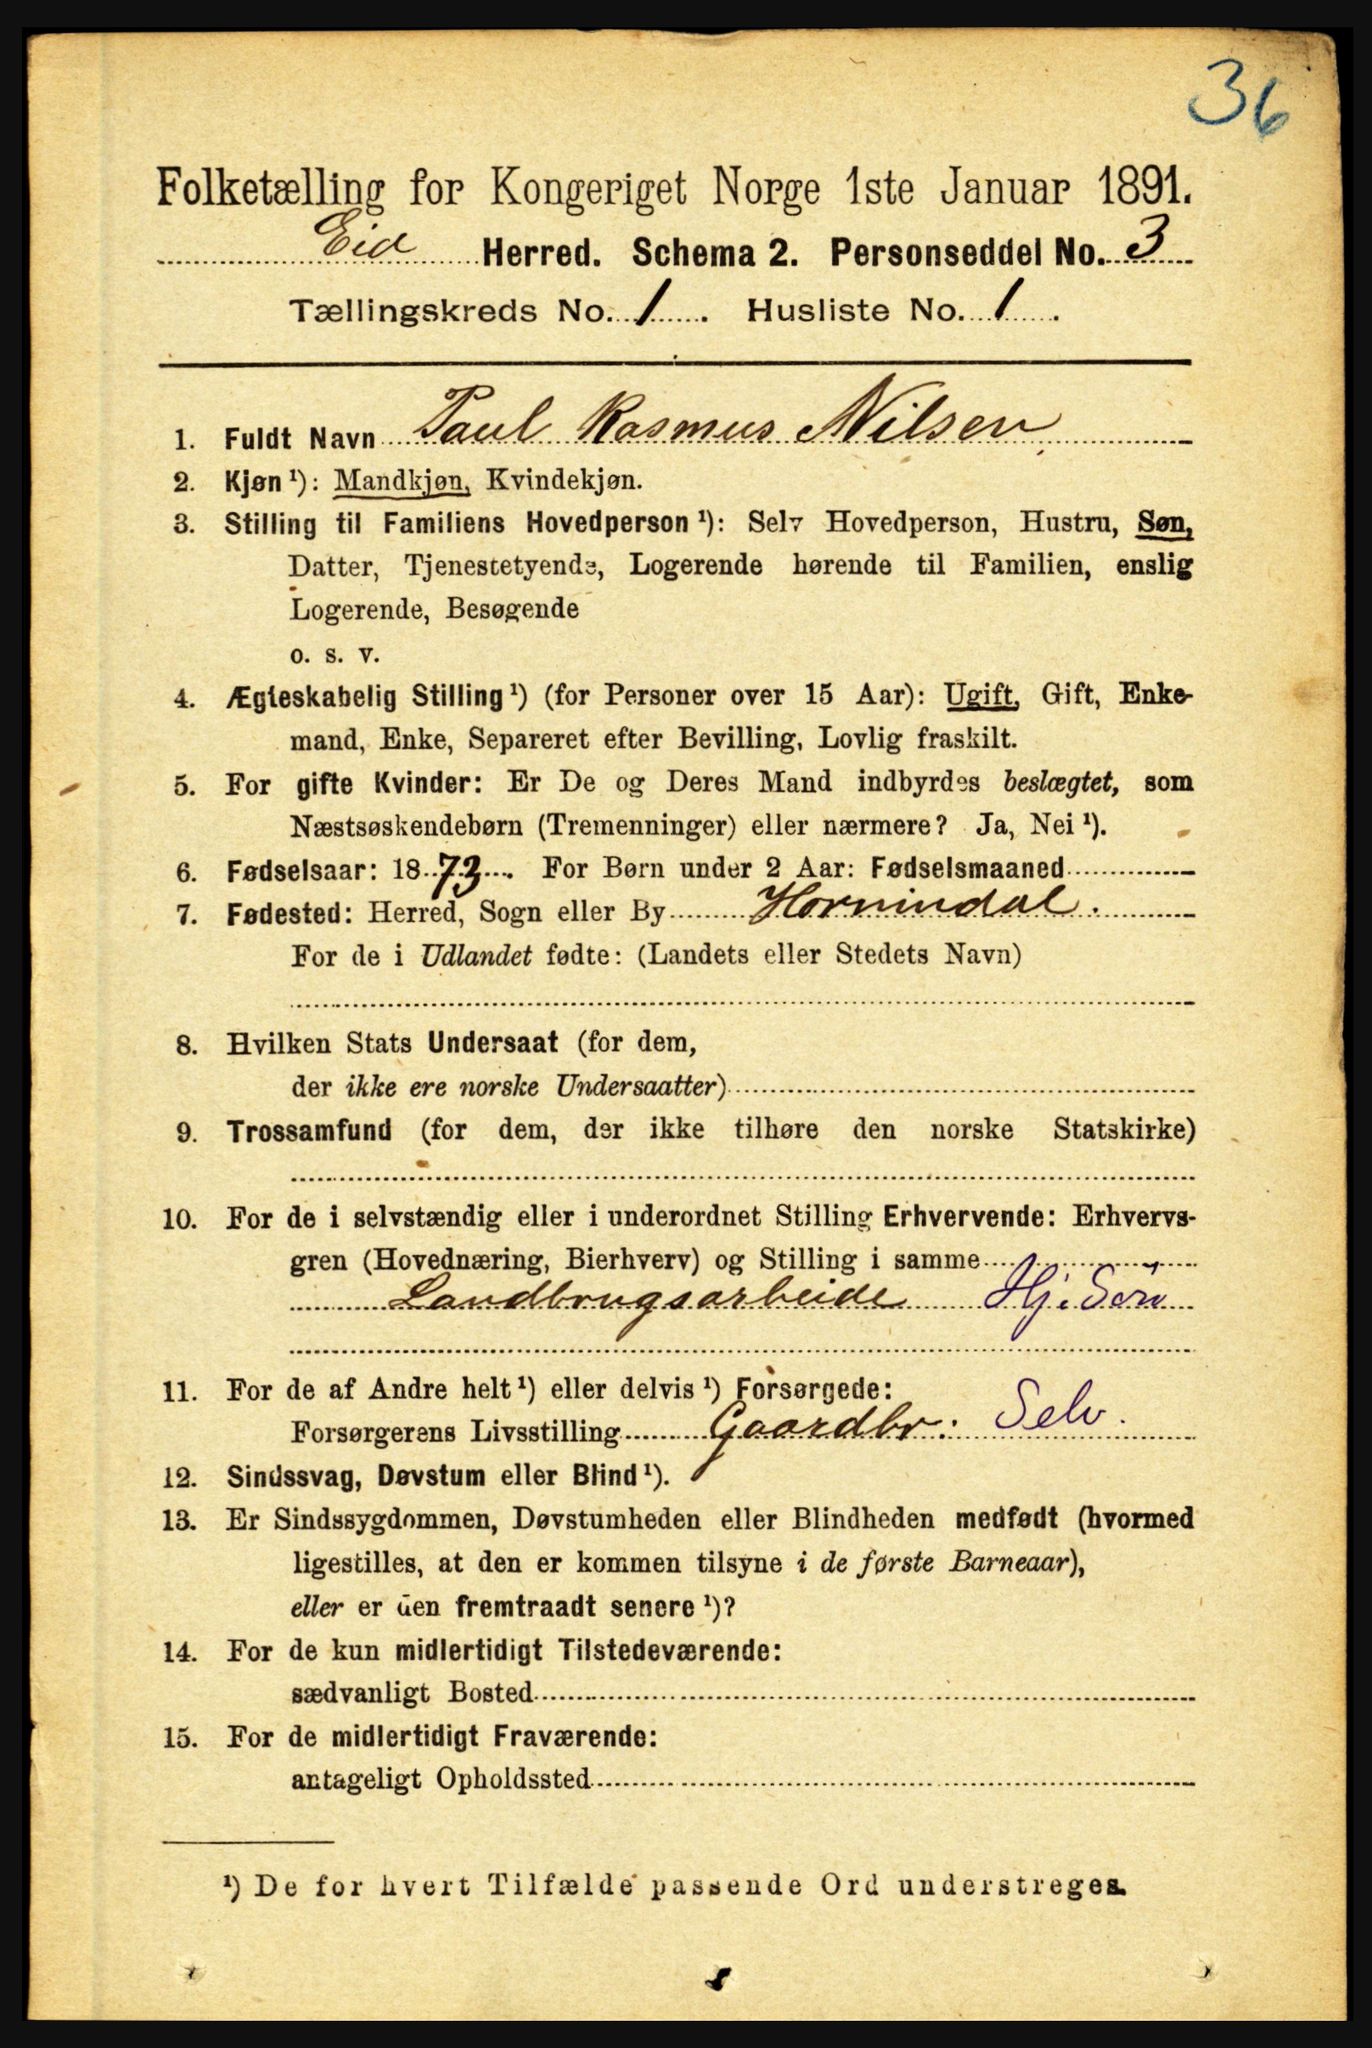 36
Folketælling for Kongeriget Norge 1ste Januar 1891.
Eid Herred. Schema 2. Personseddel No. 3
Tællingskreds No. 1. Husliste No. 1.
1. Fuldt Navn Paul Rasmus Nilsen
2. Kjøn ¹): Mandkjøn, Kvindekjøn.
3. Stilling til Familiens Hovedperson ¹): Selv Hovedperson, Hustru, Søn,
Datter, Tjenestetyende, Logerende hørende til Familien, enslig
Logerende, Besøgende
o. s. v.
4. Ægteskabelig Stilling ¹) (for Personer over 15 Aar): Ugift, Gift, Enke-
mand, Enke, Separeret efter Bevilling, Lovlig fraskilt.
5. For gifte Kvinder: Er De og Deres Mand indbyrdes beslægtet, som
Næstsøskendebørn (Tremenninger) eller nærmere? Ja, Nei ¹).
6. Fødselsaar: 1873. For Børn under 2 Aar: Fødselsmaaned
7. Fødested: Herred, Sogn eller By Hornindal.
For de i Udlandet fødte: (Landets eller Stedets Navn)
8. Hvilken Stats Undersaat (for dem,
der ikke ere norske Undersaatter)
9. Trossamfund (for dem, der ikke tilhøre den norske Statskirke)
10. For de i selvstændig eller i underordnet Stilling Erhvervende: Erhvervs-
gren (Hovednæring, Bierhverv) og Stilling i samme
Landbrugsarbeide Hj. Søn
11. For de af Andre helt ¹) eller delvis ¹) Forsørgede:
Forsørgerens Livsstilling Gaardbr: Selv.
12. Sindssvag, Døvstum eller Blind ¹).
13. Er Sindssygdommen, Døvstumheden eller Blindheden medfødt (hvormed
ligestilles, at den er kommen tilsyne i de første Barneaar),
eller er den fremtraadt senere ¹)?
14. For de kun midlertidigt Tilstedeværende:
sædvanligt Bosted
15. For de midlertidigt Fraværende:
antageligt Opholdssted
¹) De for hvert Tilfælde passende Ord understreges.